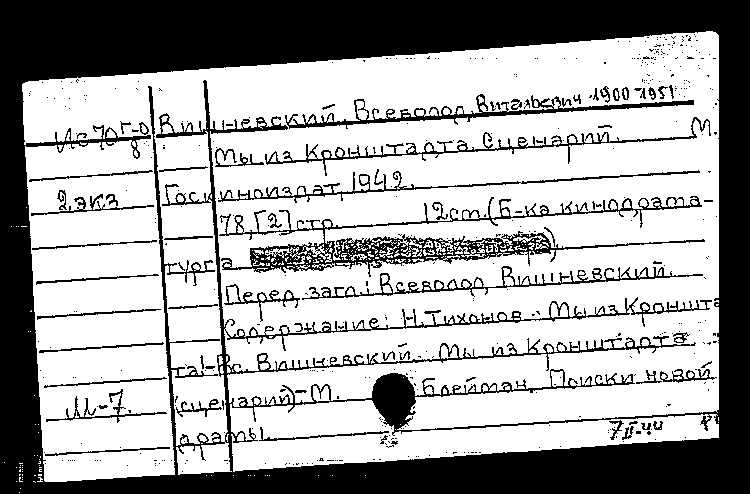 Вишневский, Всеволод, Витальевич 1900 1951
Ис70 Г-0
8
Мы из Кронштадта. Сценарий. М.
2 экз Госкиноиздат, 1942.
78,[2] стр. 12 ст. (Б-ка кинодрама-
турга )
Перед загл.: Всеволод Вишневский.
Содержание: Н.Тихонов - Мы из Кроншта
та!-Вс. Вишневский. Мы из Кронштадта
(сценарий)-М. Блейман. Поиски новой
М-7.
драмы.
7 II-44